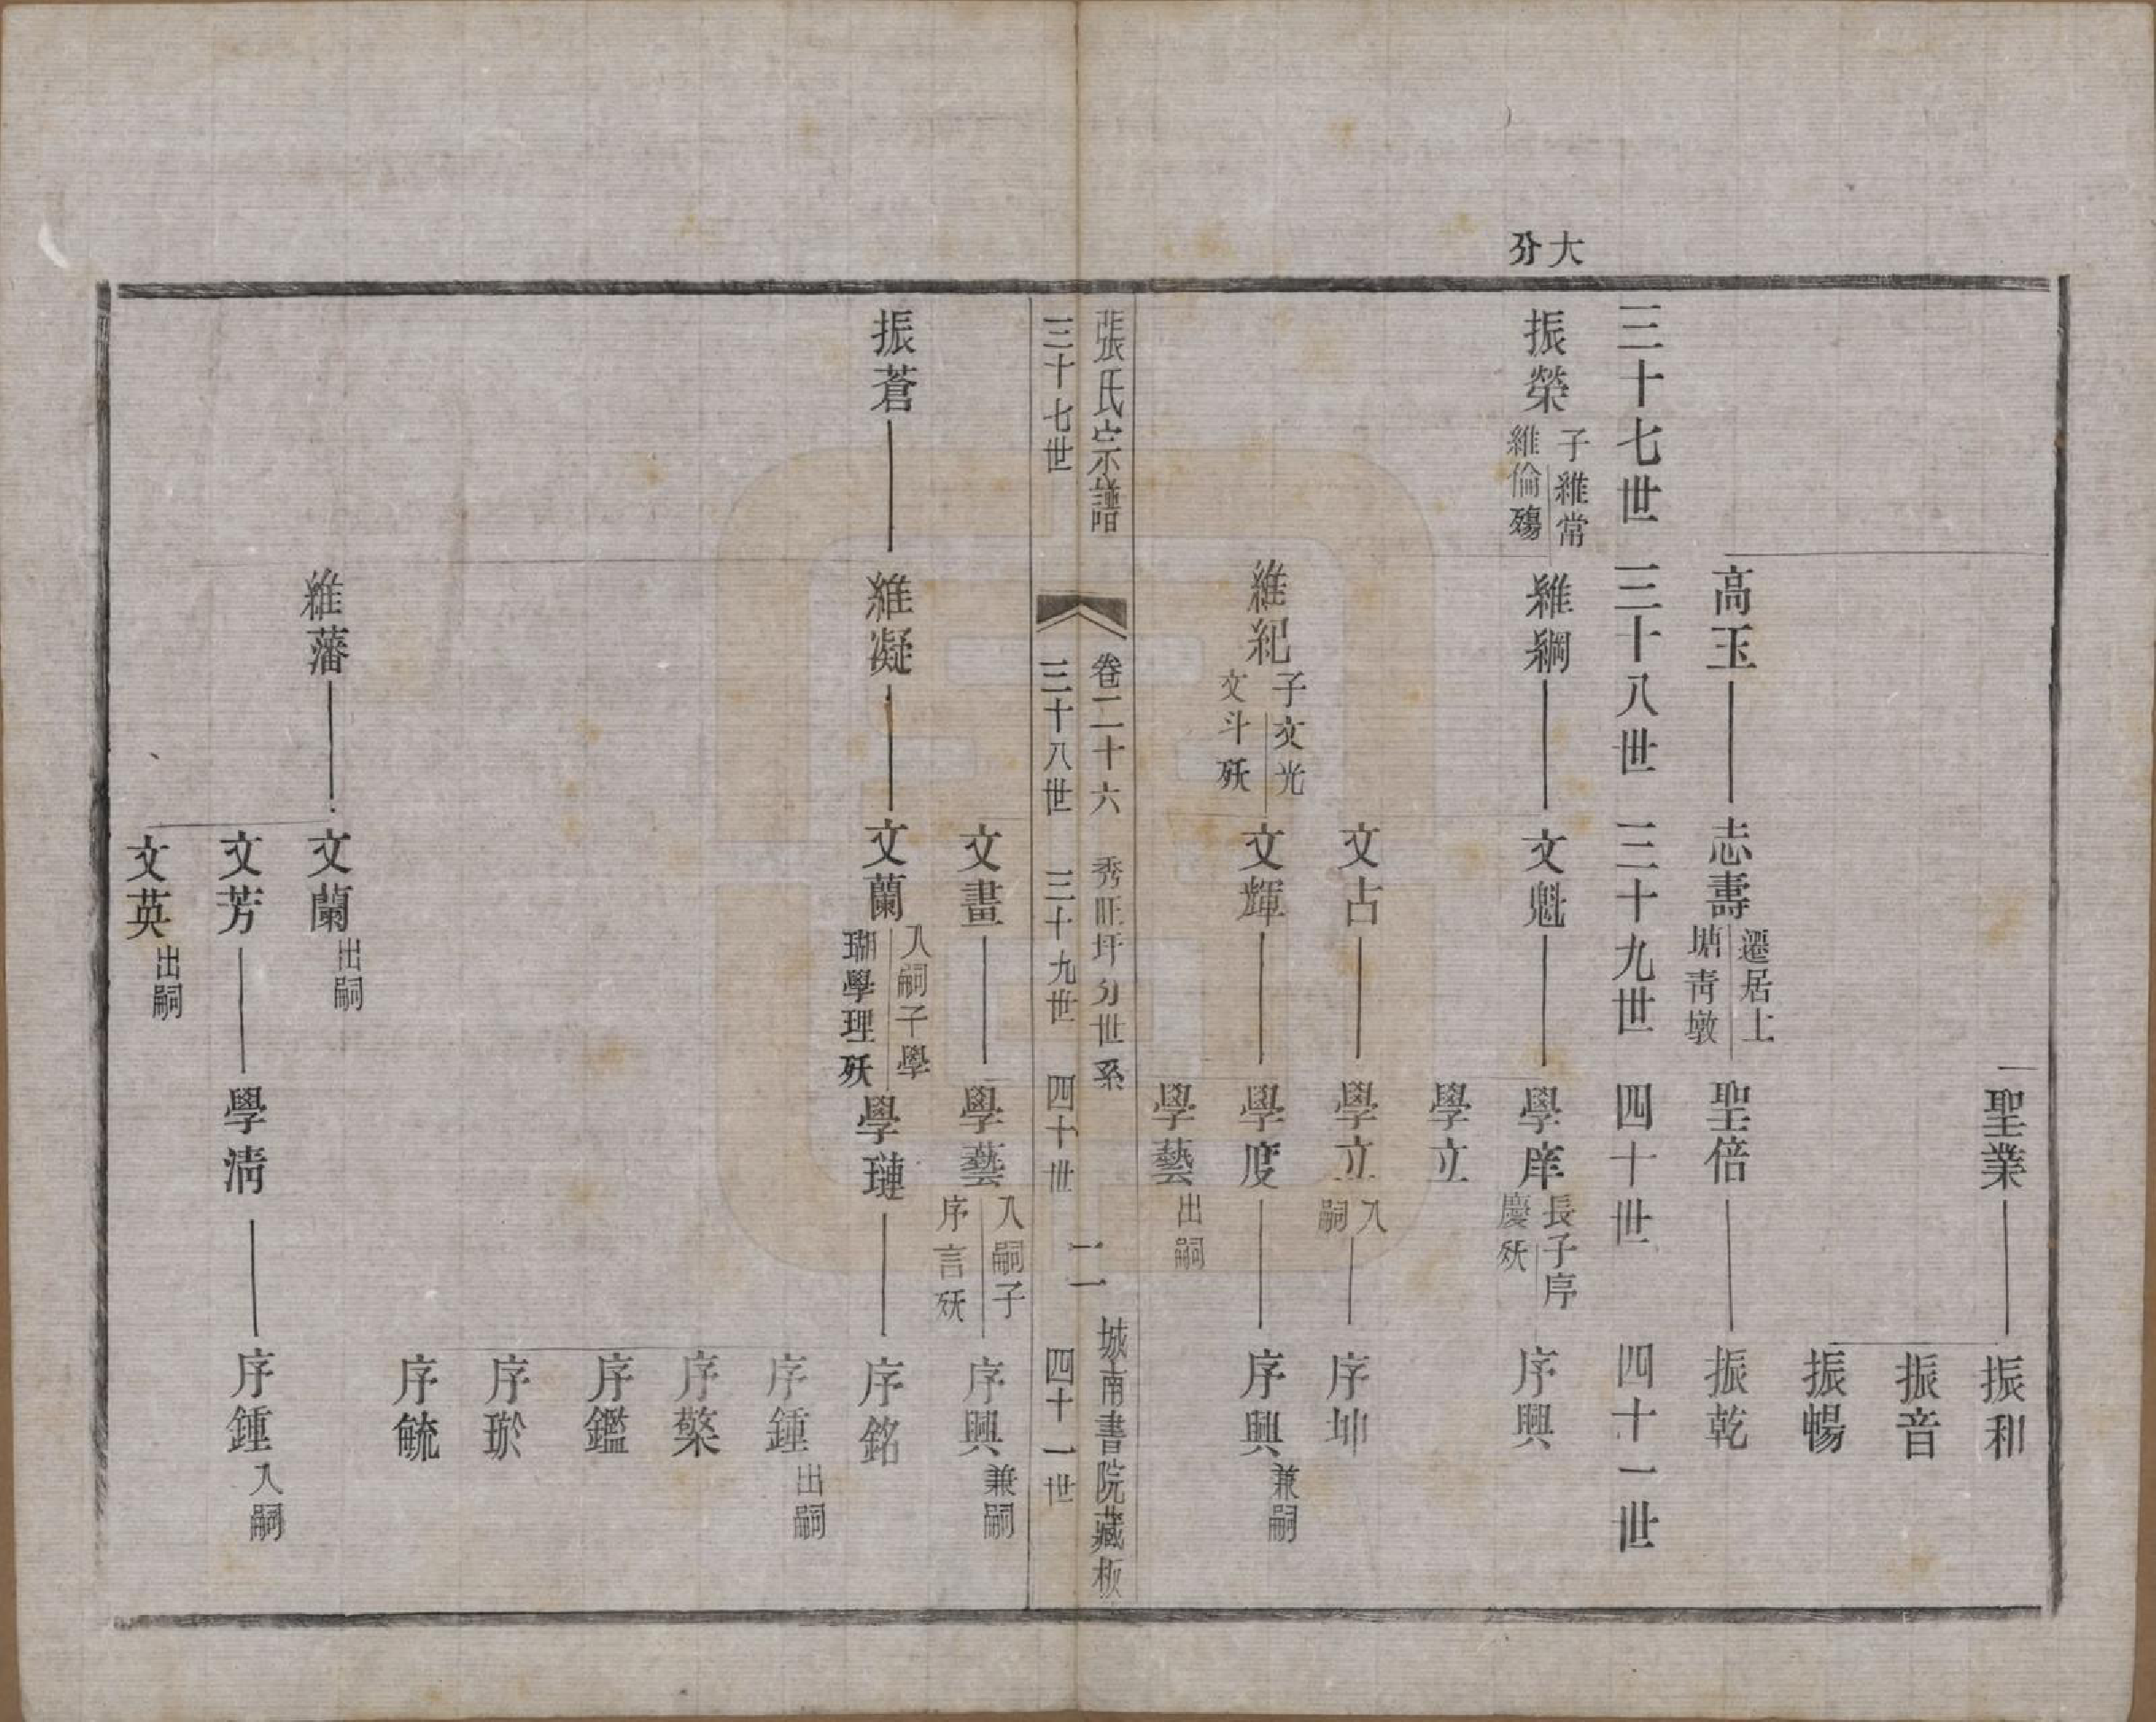 大分
聖業 振和
振音
振暢
高玉 志壽 遷居上塘靑墩 聖倍 振乾
三十七世 三十八世 三十九世 四十世 四十一世
振榮 子維常維倫殤 維綱 文魁 學庠 長子序慶殀 序興
學立
文占 學立 入嗣 序坤
維紀 子文光文斗殀 文輝 學度 序興 兼嗣
學藝 出嗣
張氏宗譜 卷二十六 秀旺圩分世系 城南書院藏板
三十七世 三十八世 三十九世 四十世 二 四十一世
文畫 學藝 入嗣子序言殀 序興 兼嗣
振蒼 維凝 文蘭 入嗣子學瑚學理殀 學璉 序銘
序鍾 出嗣
序棨
序鑑
序琁
序毓
維藩 文蘭 出嗣
文芳 學清 序鍾 入嗣
文英 出嗣